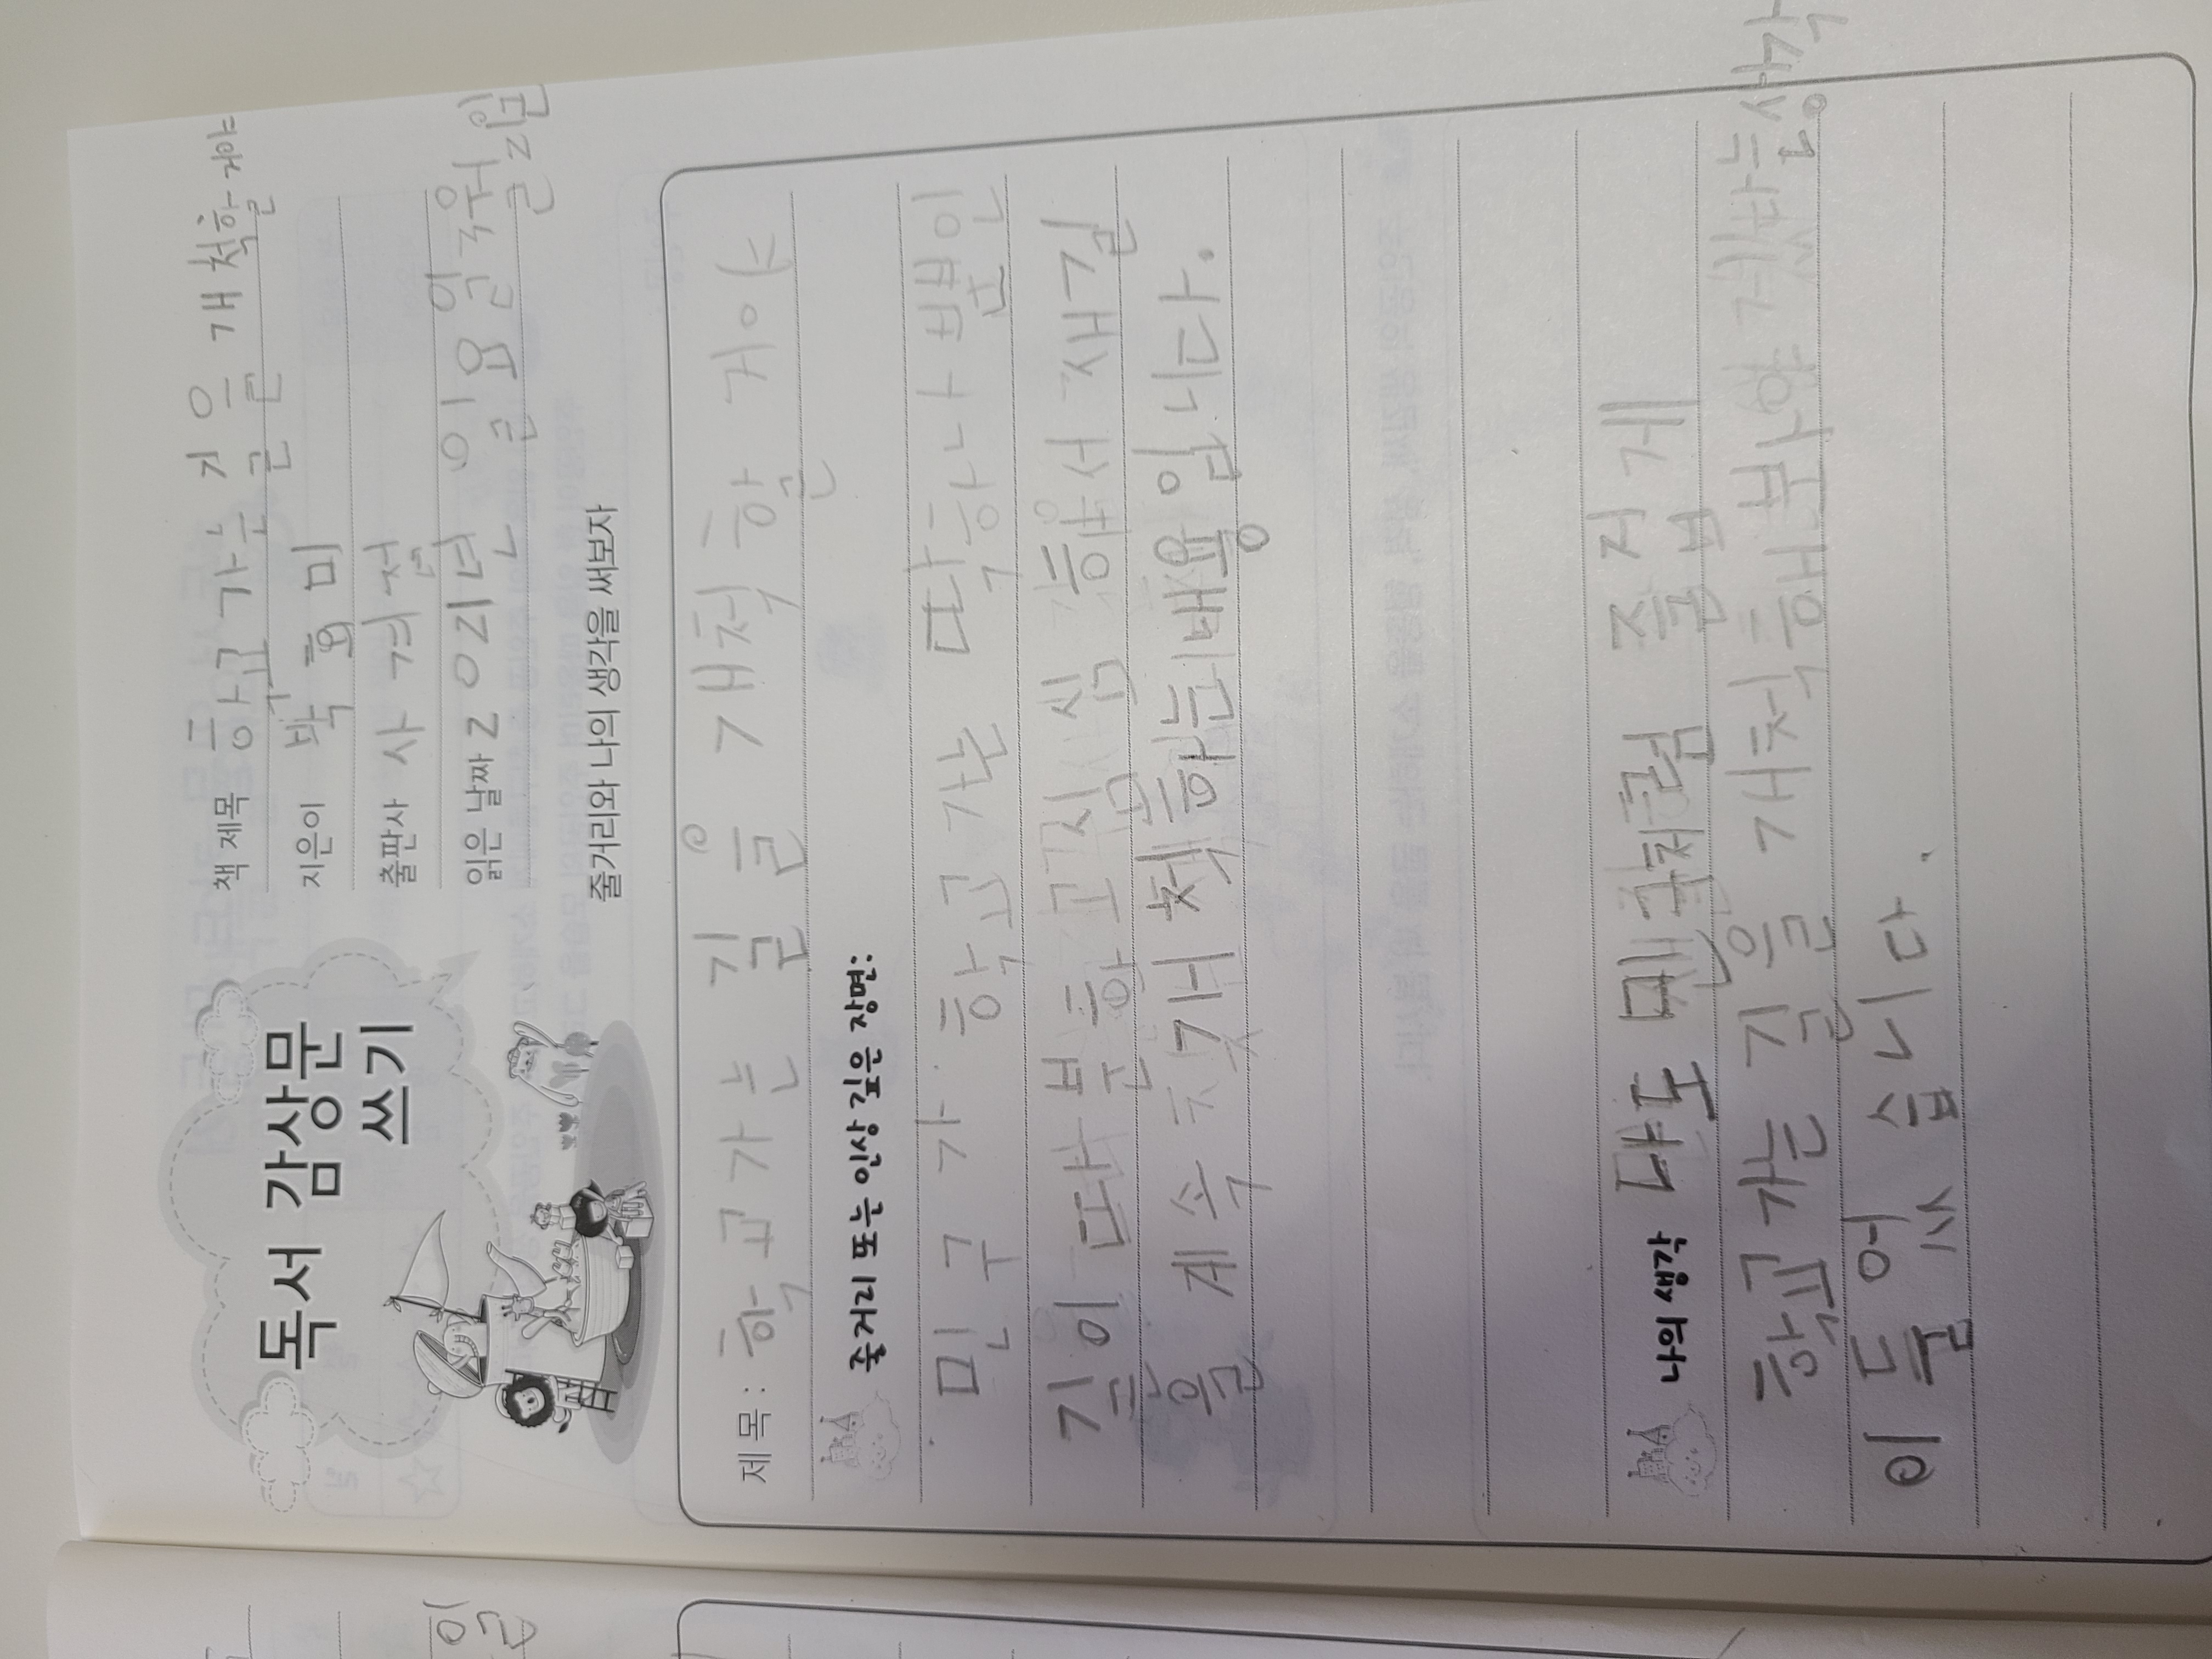 독서 감상문
쓰기
책 제목 학교 가는 길을 개척할 거야
지은이 박효미
출판사 사계절
읽은 날짜 2021년 일요일
줄거리와 나의 생각을 써보자
제목: 학교 가는 길을 개척할 거야
줄거리 또는 인상 깊은 장면:
민구가 학교 가는 딱 하나뿐인
길이 따분하고 심심해서 새길
을 계속 개척하는 내용입니다.
나의 생각 나도 민구처럼 즐겁게
학교 가는 길을 개척해 봐야 겠다는 생각
이 들었습니다.